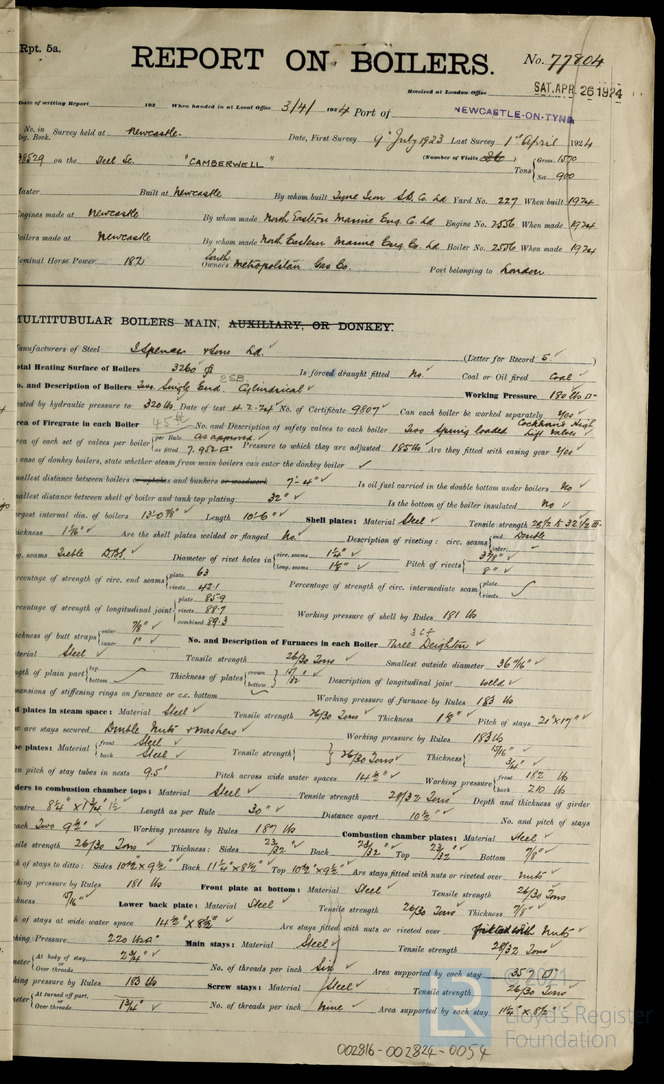 Rpt. 5a.
REPORT ON BOILERS.
No. 77804
Received at London Office SAT. APR. 26 1924
Date of writing Report 192 When handed in at Local Office 3/4/ 1924 Port of NEWCASTLE-ON-TYNE
No. in Reg. Book. Survey held at Newcastle. Date, First Survey 9th July 1923 Last Survey 1st April 1924
on the Steel Sc. "CAMBERWELL" (Number of Visits ) Tons Gross 1570 Net 900
Master Built at Newcastle By whom built Tyne Iron S.B. Co. Ld Yard No. 227 When built 1924
Engines made at Newcastle By whom made North Eastern Marine Eng. Co. Ld Engine No. 2556 When made 1924
Boilers made at Newcastle By whom made North Eastern Marine Eng Co. Ld Boiler No. 2556 When made 1924
Nominal Horse Power 182 Owners South Metropolitan Gas Co. Port belonging to London
MULTITUBULAR BOILERS MAIN, AUXILIARY, OR DONKEY.
Manufacturers of Steel J Spencer & Sons Ld. (Letter for Record S. )
Total Heating Surface of Boilers 3260 Is forced draught fitted No. Coal or Oil fired Coal
No. and Description of Boilers Two Single End. Cylindrical 2SB Working Pressure 180 lbs
Tested by hydraulic pressure to 320 lbs Date of test 4.2.24 No. of Certificate 9807 Can each boiler be worked separately Yes
Area of Firegrate in each Boiler 45 No. and Description of safety valves to each boiler Two Spring loaded Cockburns High Lift Valves
Area of each set of valves per boiler per Rule as approved or fitted 7.952 Pressure to which they are adjusted 185 lb Are they fitted with easing gear Yes
In case of donkey boilers, state whether steam from main boilers can enter the donkey boiler
Smallest distance between boilers or uptakes and bunkers or woodwork 7'-4" Is oil fuel carried in the double bottom under boilers No
Smallest distance between shell of boiler and tank top plating 32" Is the bottom of the boiler insulated No
Largest internal dia. of boilers Length 10'-6" Shell plates: Material Steel Tensile strength 28½ to 32½
Thickness 1 1/16" Are the shell plates welded or flanged No. Description of riveting: circ. seams end Double inter.
long. seams Treble DBS. Diameter of rivet holes in circ. seams 1¼" long. seams 1⅛" Pitch of rivets 8"
Percentage of strength of circ. end seams plate 63 rivets 42.1 Percentage of strength of circ. intermediate seam plate rivets
Percentage of strength of longitudinal joint plate 85.9 rivets 88.7 combined 89.3 Working pressure of shell by Rules 181 lb
Thickness of butt straps outer 7/8" inner 1" No. and Description of Furnaces in each Boiler Three Deighton
Material Steel Tensile strength 26/30 Tons Smallest outside diameter 36 7/16"
Length of plain part top bottom Thickness of plates crown bottom 15/32" Description of longitudinal joint weld
Dimensions of stiffening rings on furnace or c.c. bottom Working pressure of furnace by Rules 183 lb
End plates in steam space: Material Steel Tensile strength 26/30 Tons Thickness 1⅛" Pitch of stays 21" x 17"
How are stays secured Double Nuts & Washers Working pressure by Rules 183 lb
Tube plates: Material front Steel back Steel Tensile strength 26/30 Tons Thickness 15/16" 3/4"
Mean pitch of stay tubes in nests 9.5" Pitch across wide water spaces 14½" Working pressure front 182 lb back 210 lb
Girders to combustion chamber tops: Material Steel Tensile strength 28/32 Tons Depth and thickness of girder
at centre 8¼" x 1¾" Length as per Rule 30" Distance apart 10½" No. and pitch of stays
in each Two 9½" Working pressure by Rules 187 lb Combustion chamber plates: Material Steel
Tensile strength 26/30 Tons Thickness: Sides 23/32" Back 23/32" Top 23/32" Bottom 7/8"
Pitch of stays to ditto: Sides 10½ x 9½" Back 11¼" x 8½" Top 10½" x 9½" Are stays fitted with nuts or riveted over nuts
Working pressure by Rules 181 lb Front plate at bottom: Material Steel Tensile strength 26/30 Tons
Thickness 15/16" Lower back plate: Material Steel Tensile strength 26/30 Tons Thickness 7/8"
Pitch of stays at wide water space 14½" x 8½" Are stays fitted with nuts or riveted over fitted with Nuts
Working Pressure 220 lbs Main stays: Material Steel Tensile strength 28/32 Tons
Diameter At body of stay, or Over threads 2¾" No. of threads per inch Six Area supported by each stay 357
Working pressure by Rules 183 lb Screw stays: Material Steel Tensile strength 26/30 Tons
Diameter At turned off part, or Over threads 1¾" No. of threads per inch Nine Area supported by each stay 11¼" x 8½"
002816-002824-0054
© 2021
LR
Lloyd's Register
Foundation